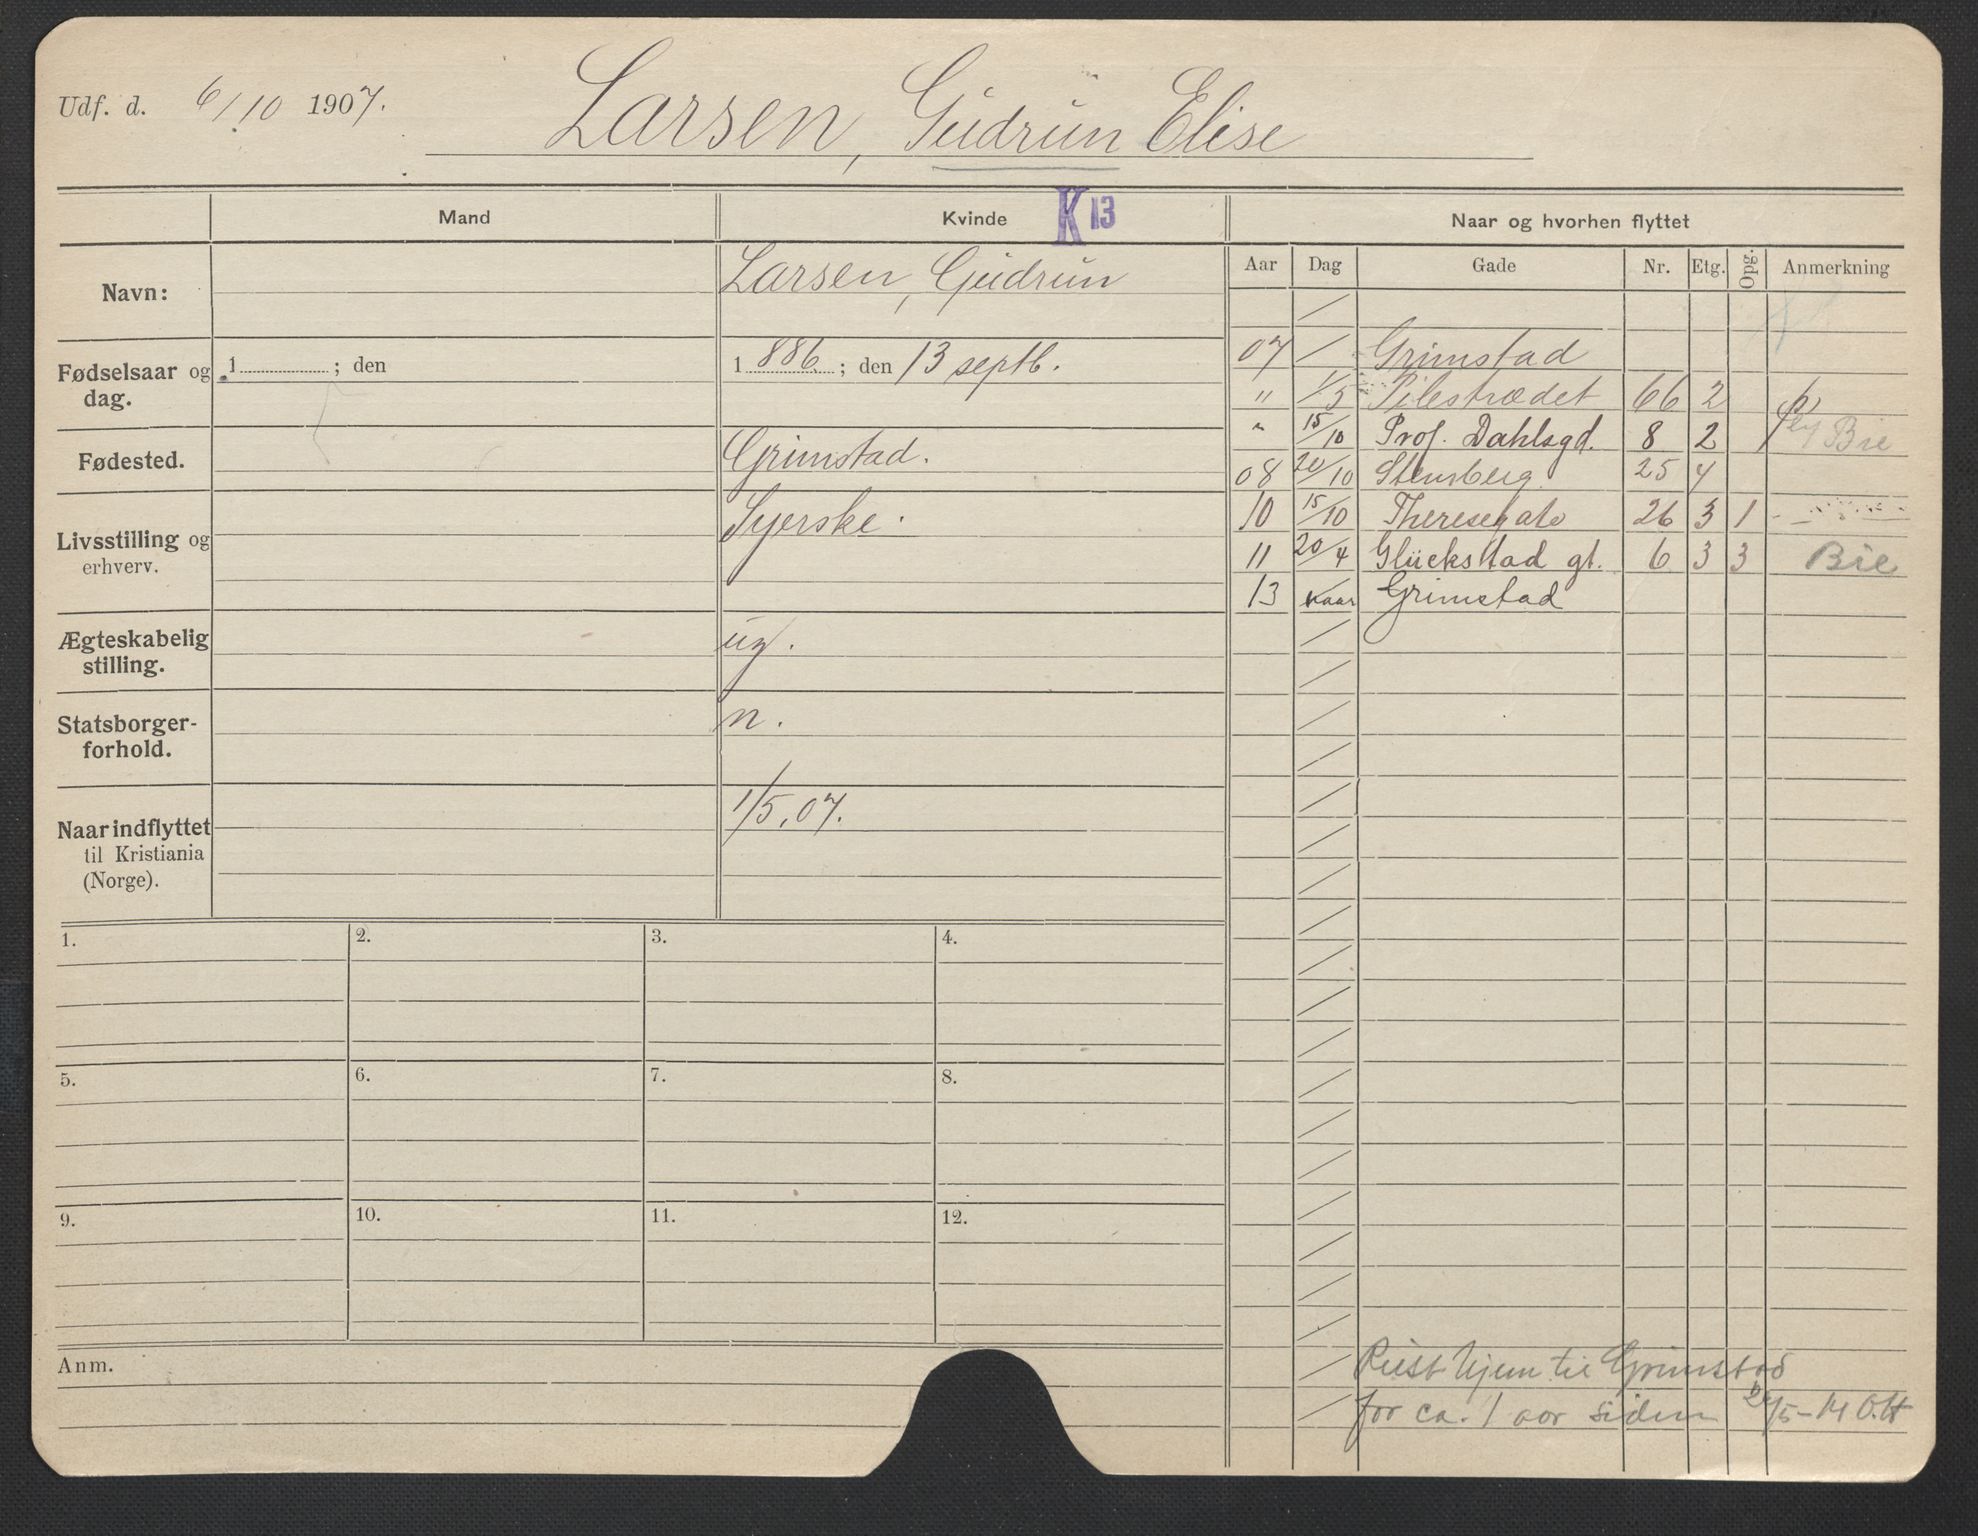 Udf. d. 6/10 1907.
Larsen, Gudrun Elise
Mand
Kvinde K 13
Naar og hvorhen flyttet
Navn:
Larsen, Gudrun
Fødselsaar og dag.
1 ; den
1 886 ; den 13 septb.
Fødested.
Grimstad.
Livsstilling og
erhverv.
Syerske.
Ægteskabelig
stilling.
ug.
Statsborger-
forhold.
n.
Naar indflyttet
til Kristiania
(Norge).
1/5.07.
Aar Dag Gade Nr. Etg. Opg. Anmerkning
07 / Grimstad
" 1/5 Pilestrædet 66 2
" 15/10 Prof. Dahlsgd. 8 2 Bie
08 20/10 Stensberg 25 4
10 15/10 Theresegate 26 3 1
11 20/4 Glückstad gt. 6 3 3 Bie
13 Grimstad
1. 2. 3. 4.
5. 6. 7. 8.
9. 10. 11. 12.
Anm.
Reist hjem til Grimstad
for ca. 1 aar siden /5-14 O.H